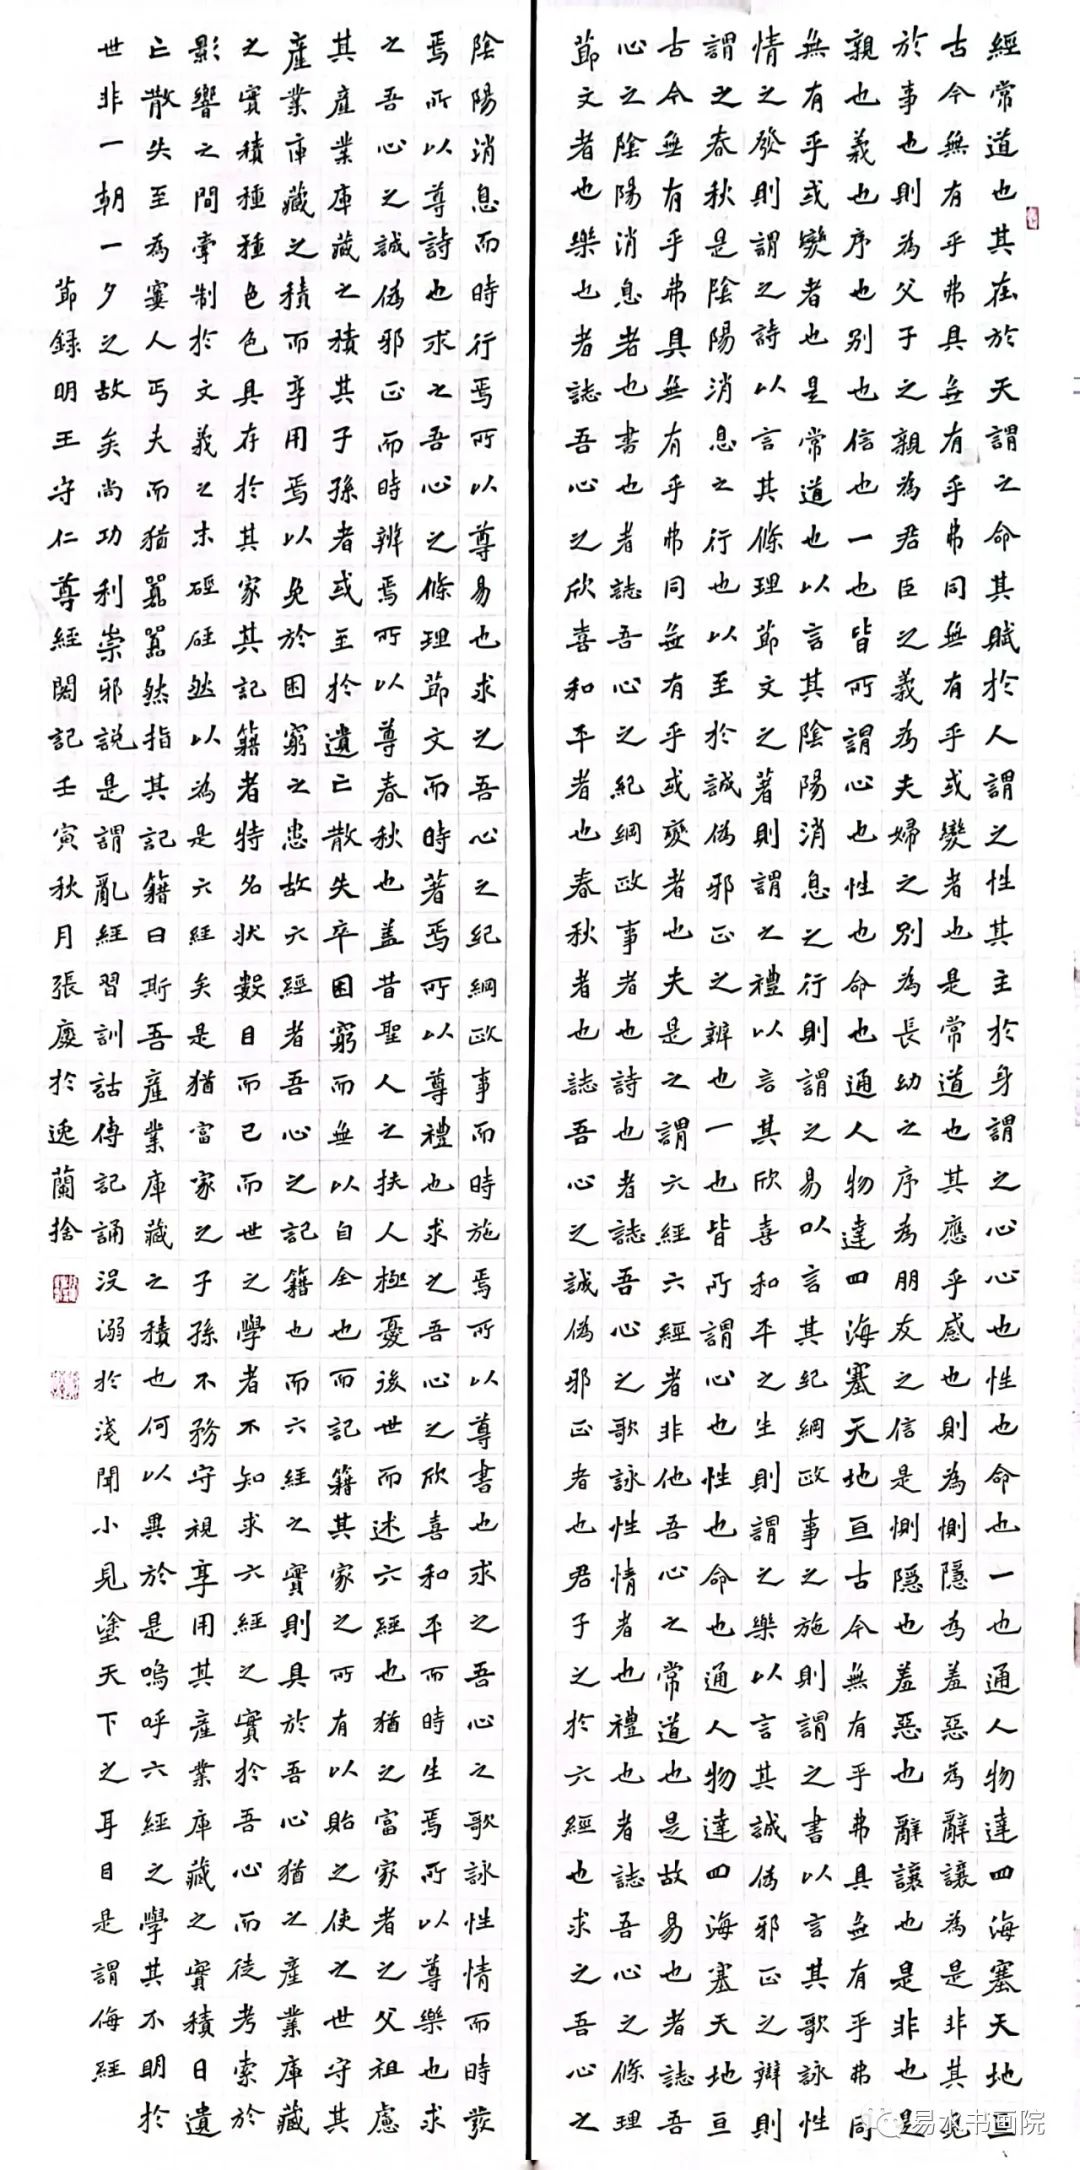 經常道也其在於天謂之命其賦於人謂之性其主於身謂之心心也性也命也一也通人物達四海塞天地亘
古今無有乎弗具無有乎弗同無有乎或變者也是常道也其應乎感也則為惻隱為羞惡為辭讓為是非其見
於事也則為父子之親為君臣之義為夫婦之別為長幼之序為朋友之信是惻隱也羞惡也辭讓也是非也是
親也義也序也別也信也一也皆所謂心也性也命也通人物達四海塞天地亘古今無有乎弗具無有乎弗同
無有乎或變者也是常道也以言其陰陽消息之行則謂之易以言其紀綱政事之施則謂之書以言其歌詠性
情之發則謂之詩以言其條理節文之著則謂之禮以言其欣喜和平之生則謂之樂以言其誠偽邪正之辯則
謂之春秋是陰陽消息之行也以至於誠偽邪正之辨也一也皆所謂心也性也命也通人物達四海塞天地亘
古今無有乎弗具無有乎弗同無有乎或變者也夫是之謂六經六經者非他吾心之常道也是故易也者誌吾
心之陰陽消息者也書也者誌吾心之紀綱政事者也詩也者誌吾心之歌詠性情者也禮也者誌吾心之條理
節文者也樂也者誌吾心之欣喜和平者也春秋者也誌吾心之誠偽邪正者也君子之於六經也求之吾心之
陰陽消息而時行焉所以尊易也求之吾心之紀綱政事而時施焉所以尊書也求之吾心之歌詠性情而時發
焉所以尊詩也求之吾心之條理節文而時著焉所以尊禮也求之吾心之欣喜和平而時生焉所以尊樂也求
之吾心之誠偽邪正而時辨焉所以尊春秋也蓋昔聖人之扶人極憂後世而述六經也猶之富家者之父祖慮
其產業庫藏之積其子孫者或至於遺亡散失卒困窮而無以自全也而記籍其家之所有以貽之使之世守其
產業庫藏之積而享用焉以免於困窮之患故六經者吾心之記籍也而六經之實則具於吾心猶之產業庫藏
之實積種種色色具存於其家其記籍者特名狀數目而已而世之學者不知求六經之實於吾心而徒考索於
影響之間牽制於文義之末硜硜然以為是六經矣是猶富家之子孫不務守視享用其產業庫藏之實積日遺
亡散失至為窶人丐夫而猶囂囂然指其記籍曰斯吾產業庫藏之積也何以異於是嗚呼六經之學其不明於
世非一朝一夕之故矣尚功利崇邪說是謂亂經習訓詁傳記誦沒溺於淺聞小見塗天下之耳目是謂侮經
節錄明王守仁尊經閣記壬寅秋月張於逸蘭捨
易水书画院